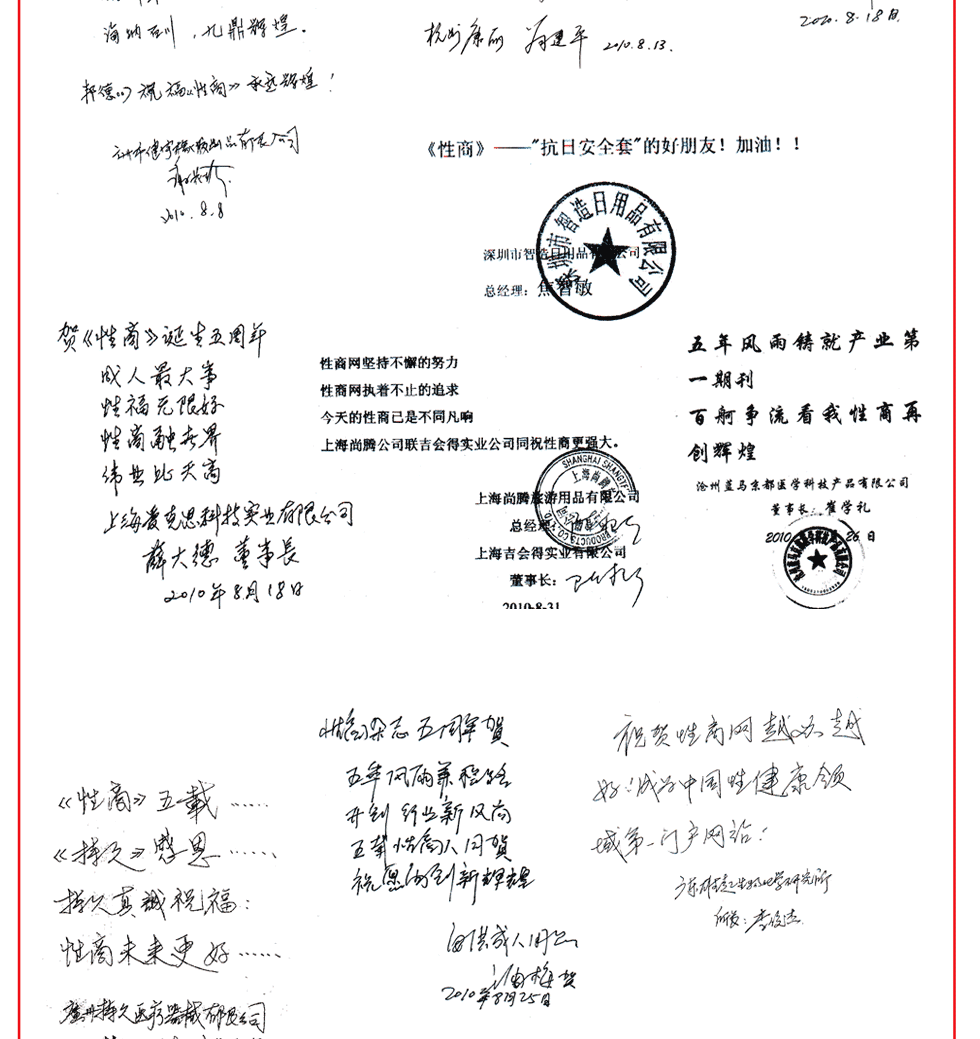 海纳百川，九鼎辉煌。
祝福《性商》永远辉煌！
2010.8.8
2010.8.13.
2020.8.18日.
《性商》——"抗日安全套"的好朋友！加油！！
深圳市智造日用品有限公司
深圳市智造日用品有限公司
总经理：焦智敏
贺《性商》诞生五周年
成人最大事
性福无限好
性商融世界
伟业比天高
上海爱克思科技实业有限公司
薛大德 董事長
2010年8月18日
性商网坚持不懈的努力
性商网执着不止的追求
今天的性商已是不同凡响
上海尚腾公司联吉会得实业公司同祝性商更强大。
上海尚腾旅游用品有限公司
总经理：
上海吉会得实业有限公司
董事长：
2010-8-31
五年风雨铸就产业第
一期刊
百舸争流看我性商再
创辉煌
沧州蓝马京都医学科技产品有限公司
董事长：崔学礼
2010 26日
《性商》五載……
《持久》感恩……
持久真诚祝福：
性商未来更好……
广州持久医疗器械有限公司
性商杂志五周年贺
五年风雨兼程路
开创行业新风尚
五载性商人同贺
祝愿再创新辉煌
2010年8月25日
祝贺性商网越办越
好！成为中国性健康领
域第一门户网站！